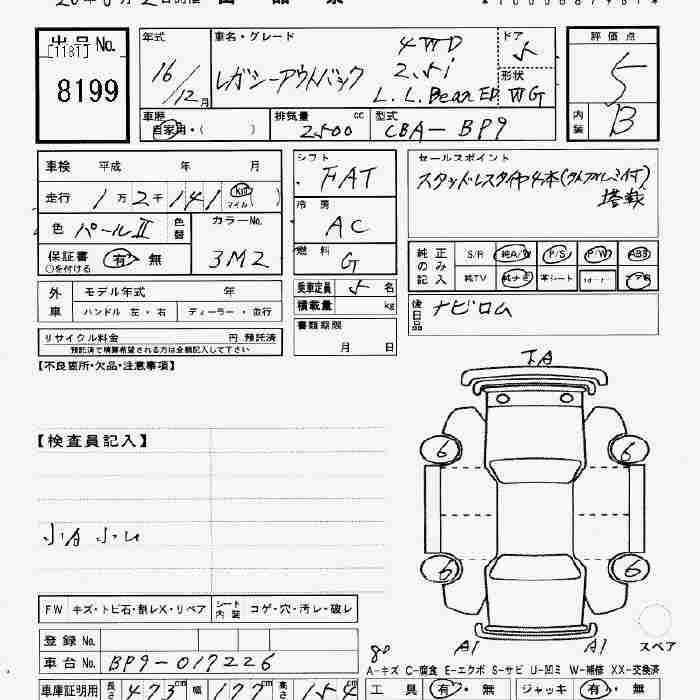 出品No.
[1181]
8199
年式
16/12月
車名・グレード
レガシーアウトバック
4WD
2.5i
L.L.Bean ED
ドア
5
形状
WG
評価点
5
内装
B
車歴
自家用・( )
排気量 cc
2500
型式
CBA-BP9
車検 平成 年 月
走行 1万2千141 km マイル ( )
色 パールⅡ
色替
カラーNo.
3M2
保証書
○を付ける
有・無
外車
モデル年式 年
ハンドル 左・右
ディーラー・並行
リサイクル料金 円 預託済
預託済で積算希望される方は金額記入して下さい
シフト
FAT
冷房
AC
燃料
G
乗車定員 5 名
積載量 kg
書類期限
月 日
セールスポイント
スタッドレスタイヤ4本(アルミ付)
搭載
純正のみ記入
S/R 純A/W P/S P/W ABS
純TV 純ナビ 本シート
後日品
ナビロム
【不良箇所・欠品・注意事項】
【検査員記入】
小A 小U
FW キズ・トビ石・割レX・リペア
シート内装 コゲ・穴・汚レ・破レ
登録No.
車台No. BP9-017226
車庫証明用 長さ 473 cm 幅 177 cm 高さ 154 cm
下A
6
6
6
6
A1
A1
スペア
A-キズ C-腐食 E-エクボ S-サビ U-凹ミ W-補修 XX-交換済
工具 有・無 ジャッキ 有・無